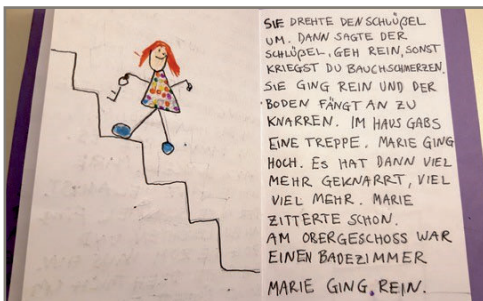 SIE DREHTE DEN SCHLÜßEL
UM. DANN SAGTE DER
SCHLÜßEL, GEH REIN, SONST
KRIEGST DU BAUCHSCHMERZEN.
SIE GING REIN UND DER
BODEN FÄNGT AN ZU
KNARREN. IM HAUS GABS
EINE TREPPE. MARIE GING
HOCH. ES HAT DANN VIEL
MEHR GEKNARRT, VIEL
VIEL MEHR. MARIE
ZITTERTE SCHON.
AM OBERGESCHOSS WAR
EINEN BADEZIMMER
MARIE GING REIN.